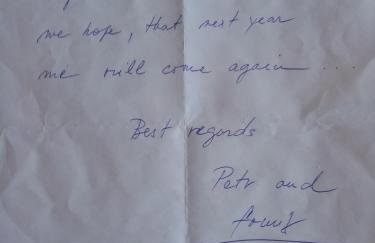 we hope, that next year
me will come again ...
Best regards
Petr and